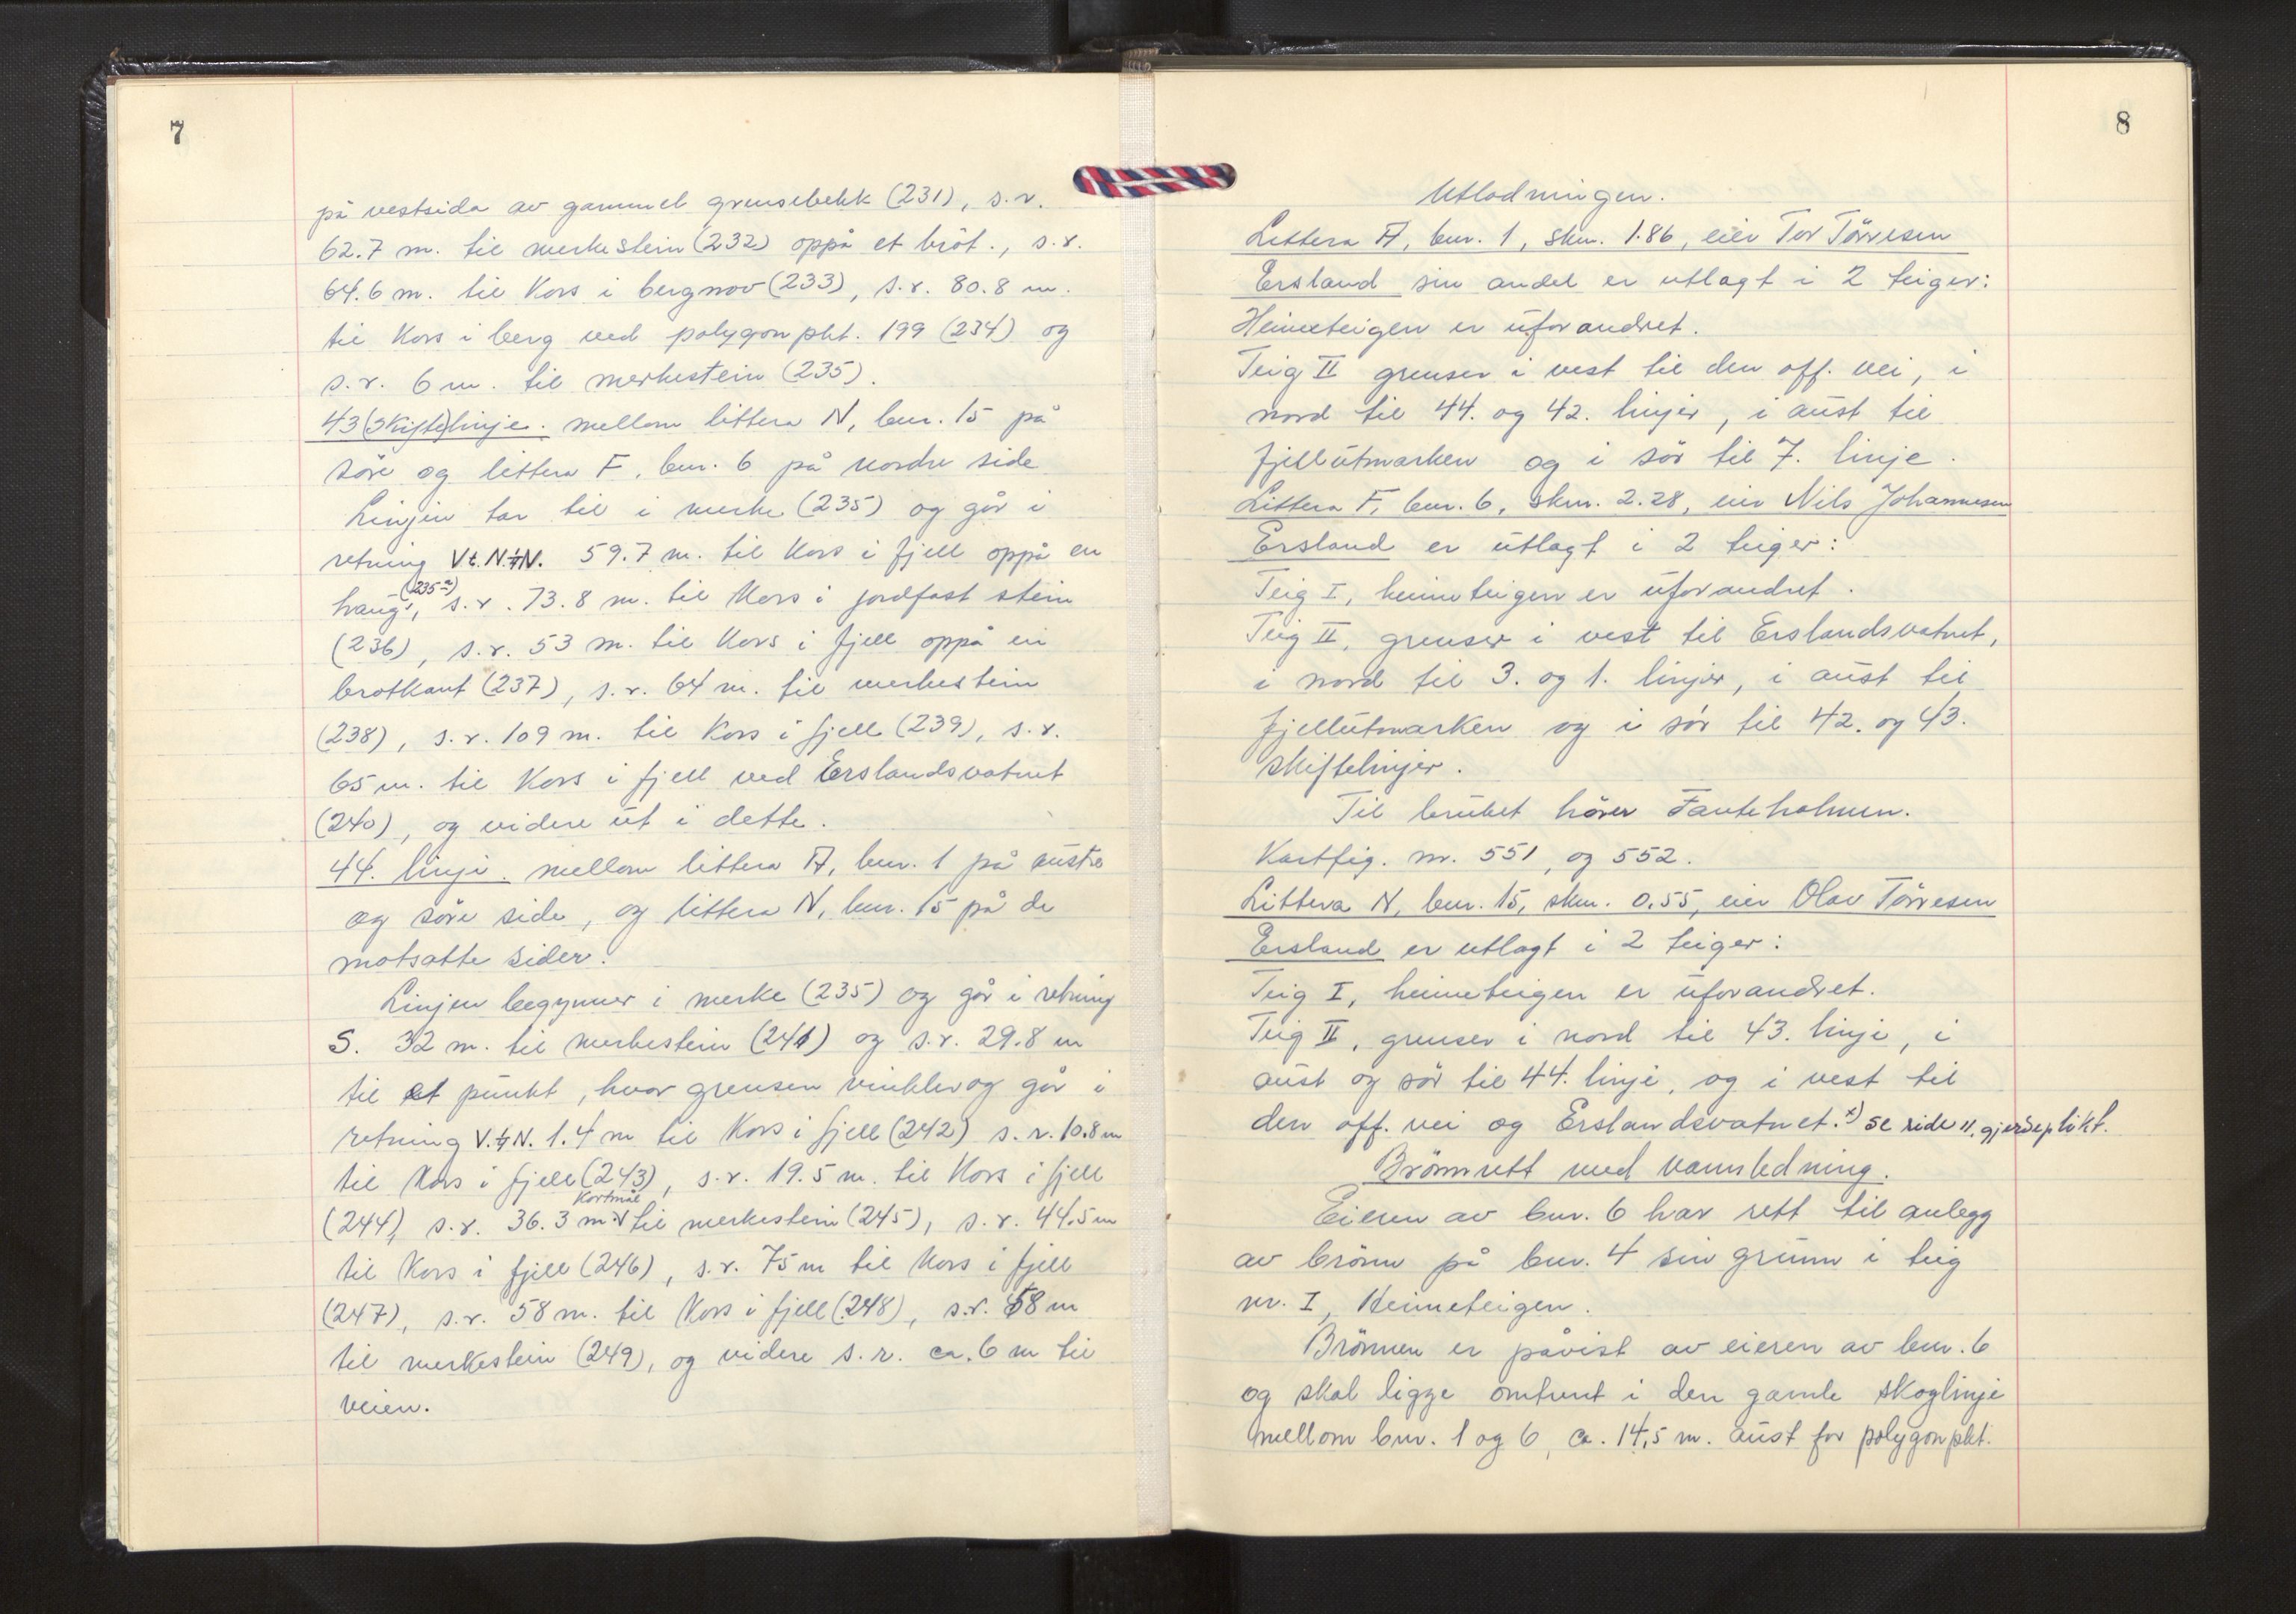 7
på vestsida av gammel grensebekk (231), s.r.
62.7 m. til merkestein (232) oppå et bröt., s.r.
64.6 m. til Kors i bergnov (233), s.r. 80.8 m.
til Kors i berg ved polygonpkt. 199 (234) og
s.r. 6 m. til merkestein (235).
43 (Skifte)linje. mellom littera N, bnr. 15 på
söre og littera F, bnr. 6 på nordre side
Linjen tar til i merke (235) og går i
retning Vt.N.¼N. 59.7 m. til Kors i fjell oppå en
haug (235 a), s.r. 73.8 m. til Kors i jordfast stein
(236), s.r. 53 m. til Kors i fjell oppå ei
brotkant (237), s.r. 64 m. til merkestein
(238), s.r. 109 m. til Kors i fjell (239), s.r.
65 m. til Kors i fjell ved Erslandsvatnet
(240), og videre ut i dette.
44. linje. mellom littera A, bnr. 1 på austre
og söre side, og littera N, bnr. 15 på de
motsatte sider.
Linjen begynner i merke (235) og går i retning
S. 32 m. til merkestein (241) og s.r. 29.8 m
til et punkt, hvor grensen vinkler og går i
retning V.¼N. 1.4 m til Kors i fjell (242) s.r. 10.8 m
til Kors i fjell (243), s.r. 19.5 m. til Kors i fjell
(244), s.r. 36.3 m Kartmål til merkestein (245), s.r. 44.5 m
til Kors i fjell (246), s.r. 75 m til Kors i fjell
(247), s.r. 58 m. til Kors i fjell (248), s.r. 58 m
til merkestein (249), og videre s.r. ca. 6 m til
veien.
8
Utlodningen.
Littera A, bnr. 1, skm. 1.86, eier Tor Törresen
Ersland sin andel er utlagt i 2 teiger:
Heimeteigen er uforandret.
Teig II grenser i vest til den off. vei, i
nord til 44. og 42. linjer, i aust til
fjellutmarken og i sör til 7. linje.
Littera F, bnr. 6, skm. 2.28, eier Nils Johannesen
Ersland er utlagt i 2 teiger:
Teig I, heimeteigen er uforandret.
Teig II, grenser i vest til Erslandsvatnet,
i nord til 3. og 1. linjer, i aust til
fjellutmarken og i sör til 42. og 43.
skiftelinjer.
Til bruket hörer Fanteholmen.
Kartfig. nr. 551, og 552.
Littera N, bnr. 15, skm. 0.55, eier Olav Törresen
Ersland er utlagt i 2 teiger:
Teig I, heimeteigen er uforandret.
Teig II, grenser i nord til 43. linje, i
aust og sör til 44. linje, og i vest til
den off. vei og Erslandsvatnet. x) se side 11. gjerdeplikt.
Brönnrett med vannledning.
Eieren av bnr. 6 har rett til anlegg
av brönn på bnr. 4 sin grunn i teig
nr. I, Heimeteigen.
Brönnen er påvist av eieren av bnr. 6
og skal ligge omtrent i den gamle skoglinje
mellom bnr. 1 og 6, ca. 14,5 m. aust for polygonpkt.